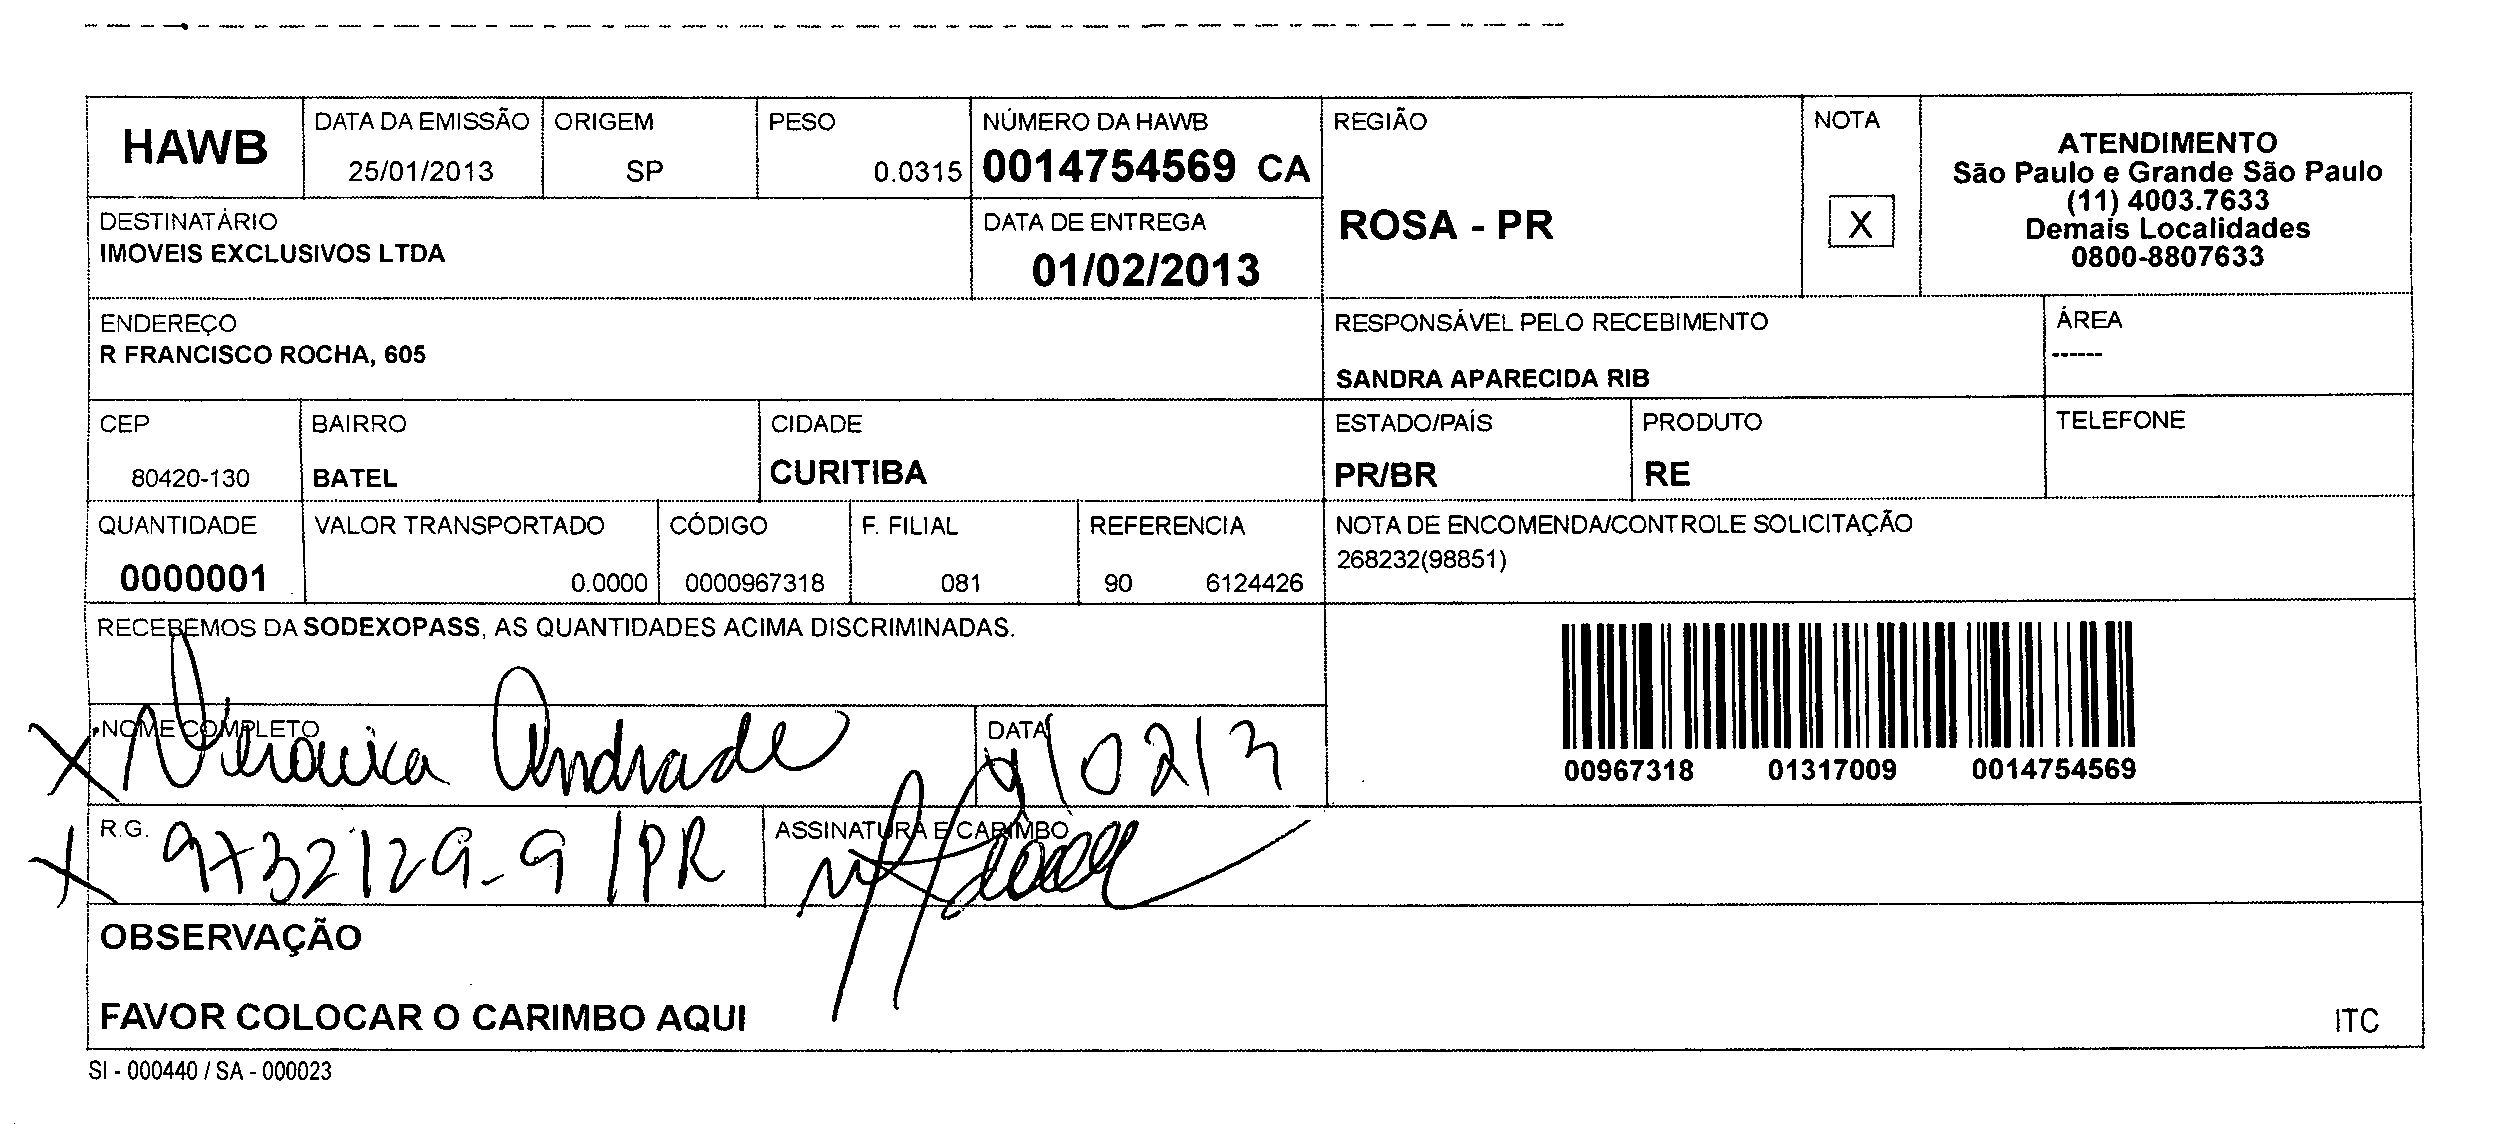 HAWB
DATA DA EMISSÃO
25/01/2013
ORIGEM
SP
PESO
0.0315
NÚMERO DA HAWB
0014754569 CA
REGIÃO
ROSA - PR
NOTA
X
ATENDIMENTO
São Paulo e Grande São Paulo
(11) 4003.7633
Demais Localidades
0800-8807633
DESTINATÁRIO
IMOVEIS EXCLUSIVOS LTDA
DATA DE ENTREGA
01/02/2013
ENDEREÇO
R FRANCISCO ROCHA, 605
RESPONSÁVEL PELO RECEBIMENTO
SANDRA APARECIDA RIB
ÁREA
------
CEP
80420-130
BAIRRO
BATEL
CIDADE
CURITIBA
ESTADO/PAÍS
PR/BR
PRODUTO
RE
TELEFONE
QUANTIDADE
0000001
VALOR TRANSPORTADO
0.0000
CÓDIGO
0000967318
F. FILIAL
081
REFERENCIA
90 6124426
NOTA DE ENCOMENDA/CONTROLE SOLICITAÇÃO
268232(98851)
RECEBEMOS DA SODEXOPASS, AS QUANTIDADES ACIMA DISCRIMINADAS.
NOME COMPLETO
X Veronica Andrade
DATA
00967318 01317009 0014754569
R.G.
X 9732129-9/PR
ASSINATURA E CARIMBO
OBSERVAÇÃO
FAVOR COLOCAR O CARIMBO AQUI
ITC
SI - 000440 / SA - 000023